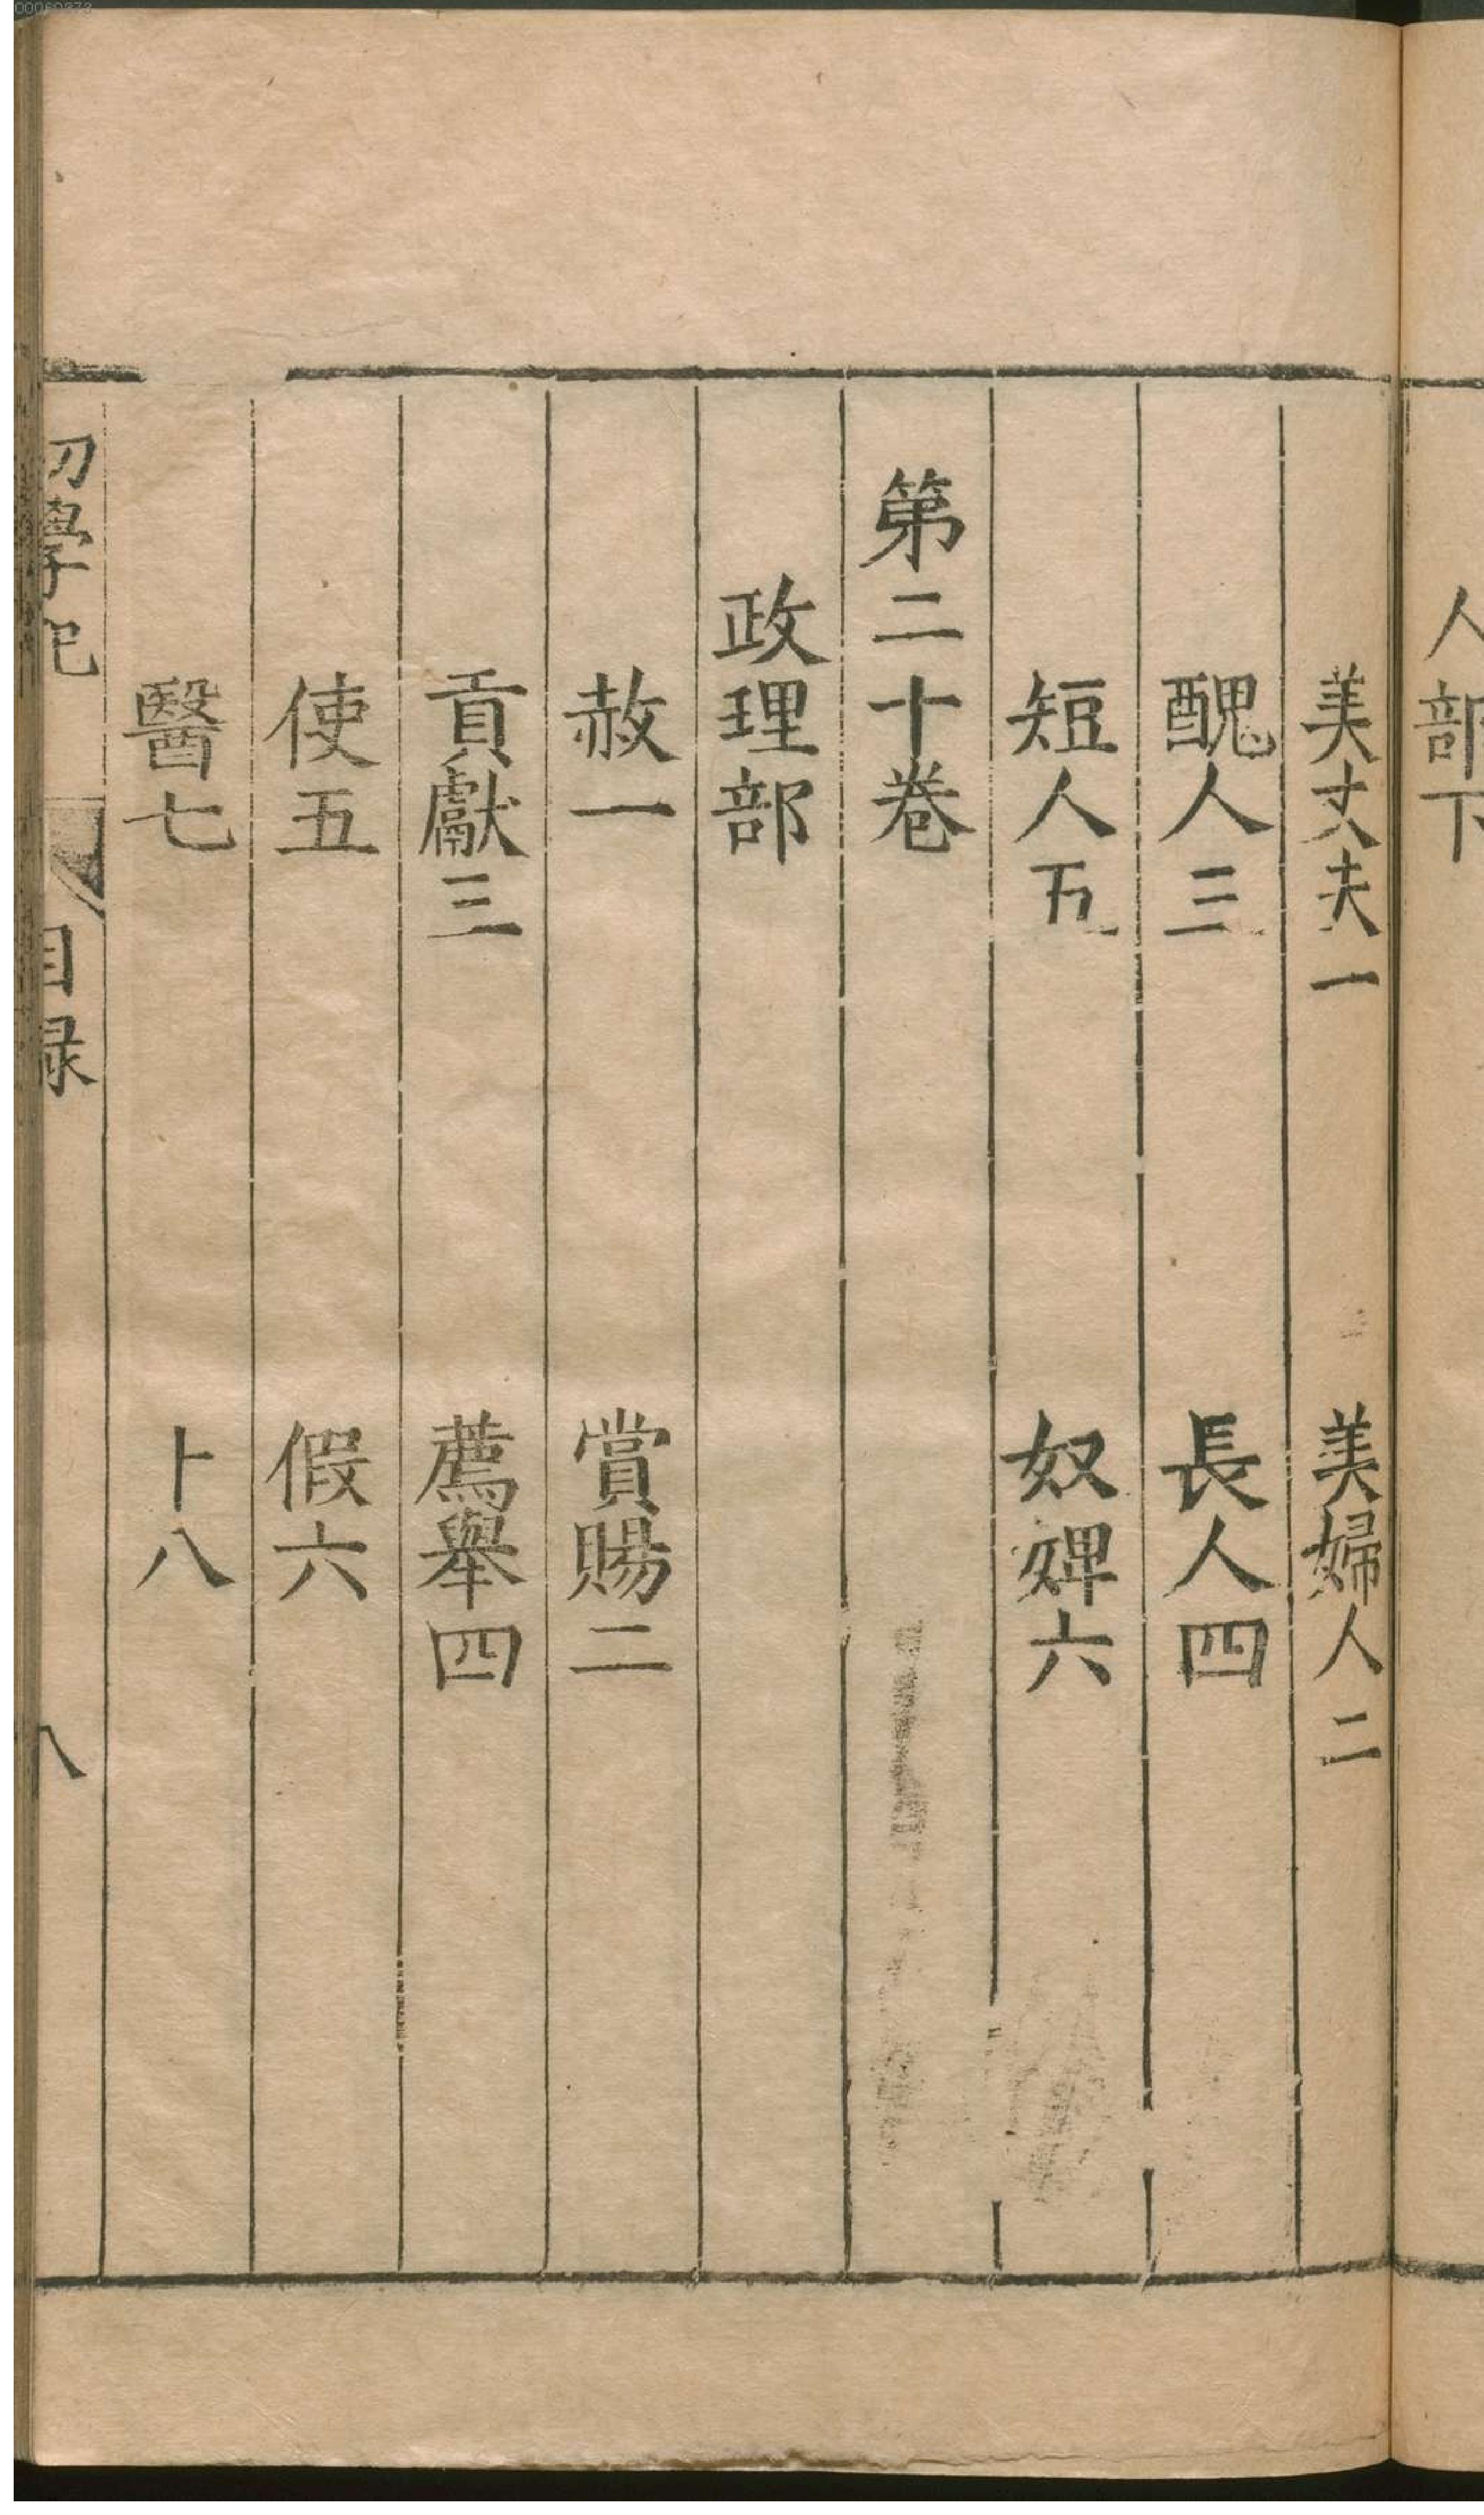 人部下
美丈夫一 美婦人二
醜人三 長人四
短人五 奴婢六
第二十卷
政理部
赦一 賞賜二
貢獻三 薦舉四
使五 假六
醫七 卜八
初學記 目録 八
00060273